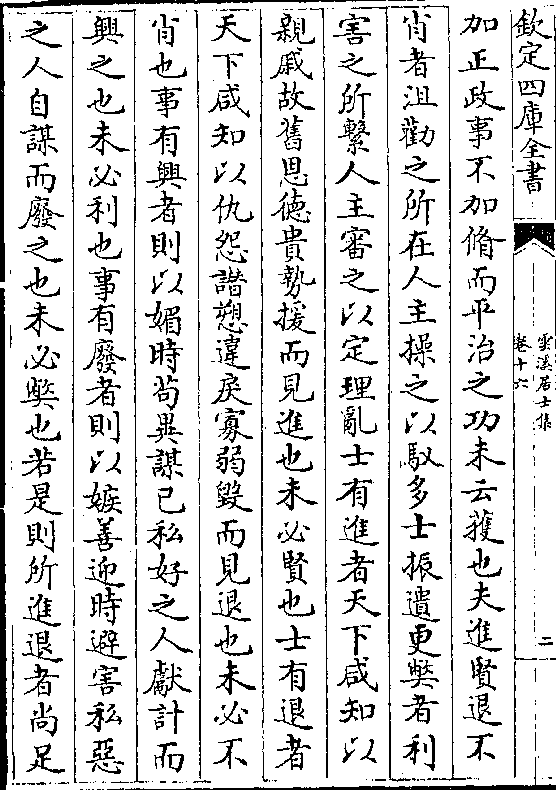 欽定四庫全書
雲溪居士集
卷十六
二
加正政事不加脩而平治之功未云獲也夫進賢退不
肖者沮勸之所在人主操之以馭多士振遺更獘者利
害之所繫人主審之以定理亂士有進者天下咸知以
親戚故舊恩德貴勢援而見進也未必賢也士有退者
天下咸知以仇怨譖愬違戾寡弱毀而見退也未必不
肖也事有興者則以媚時茍異謀已私好之人獻計而
興之也未必利也事有廢者則以嫉善迎時避害私惡
之人自謀而廢之也未必獘也若是則所進退者尚足